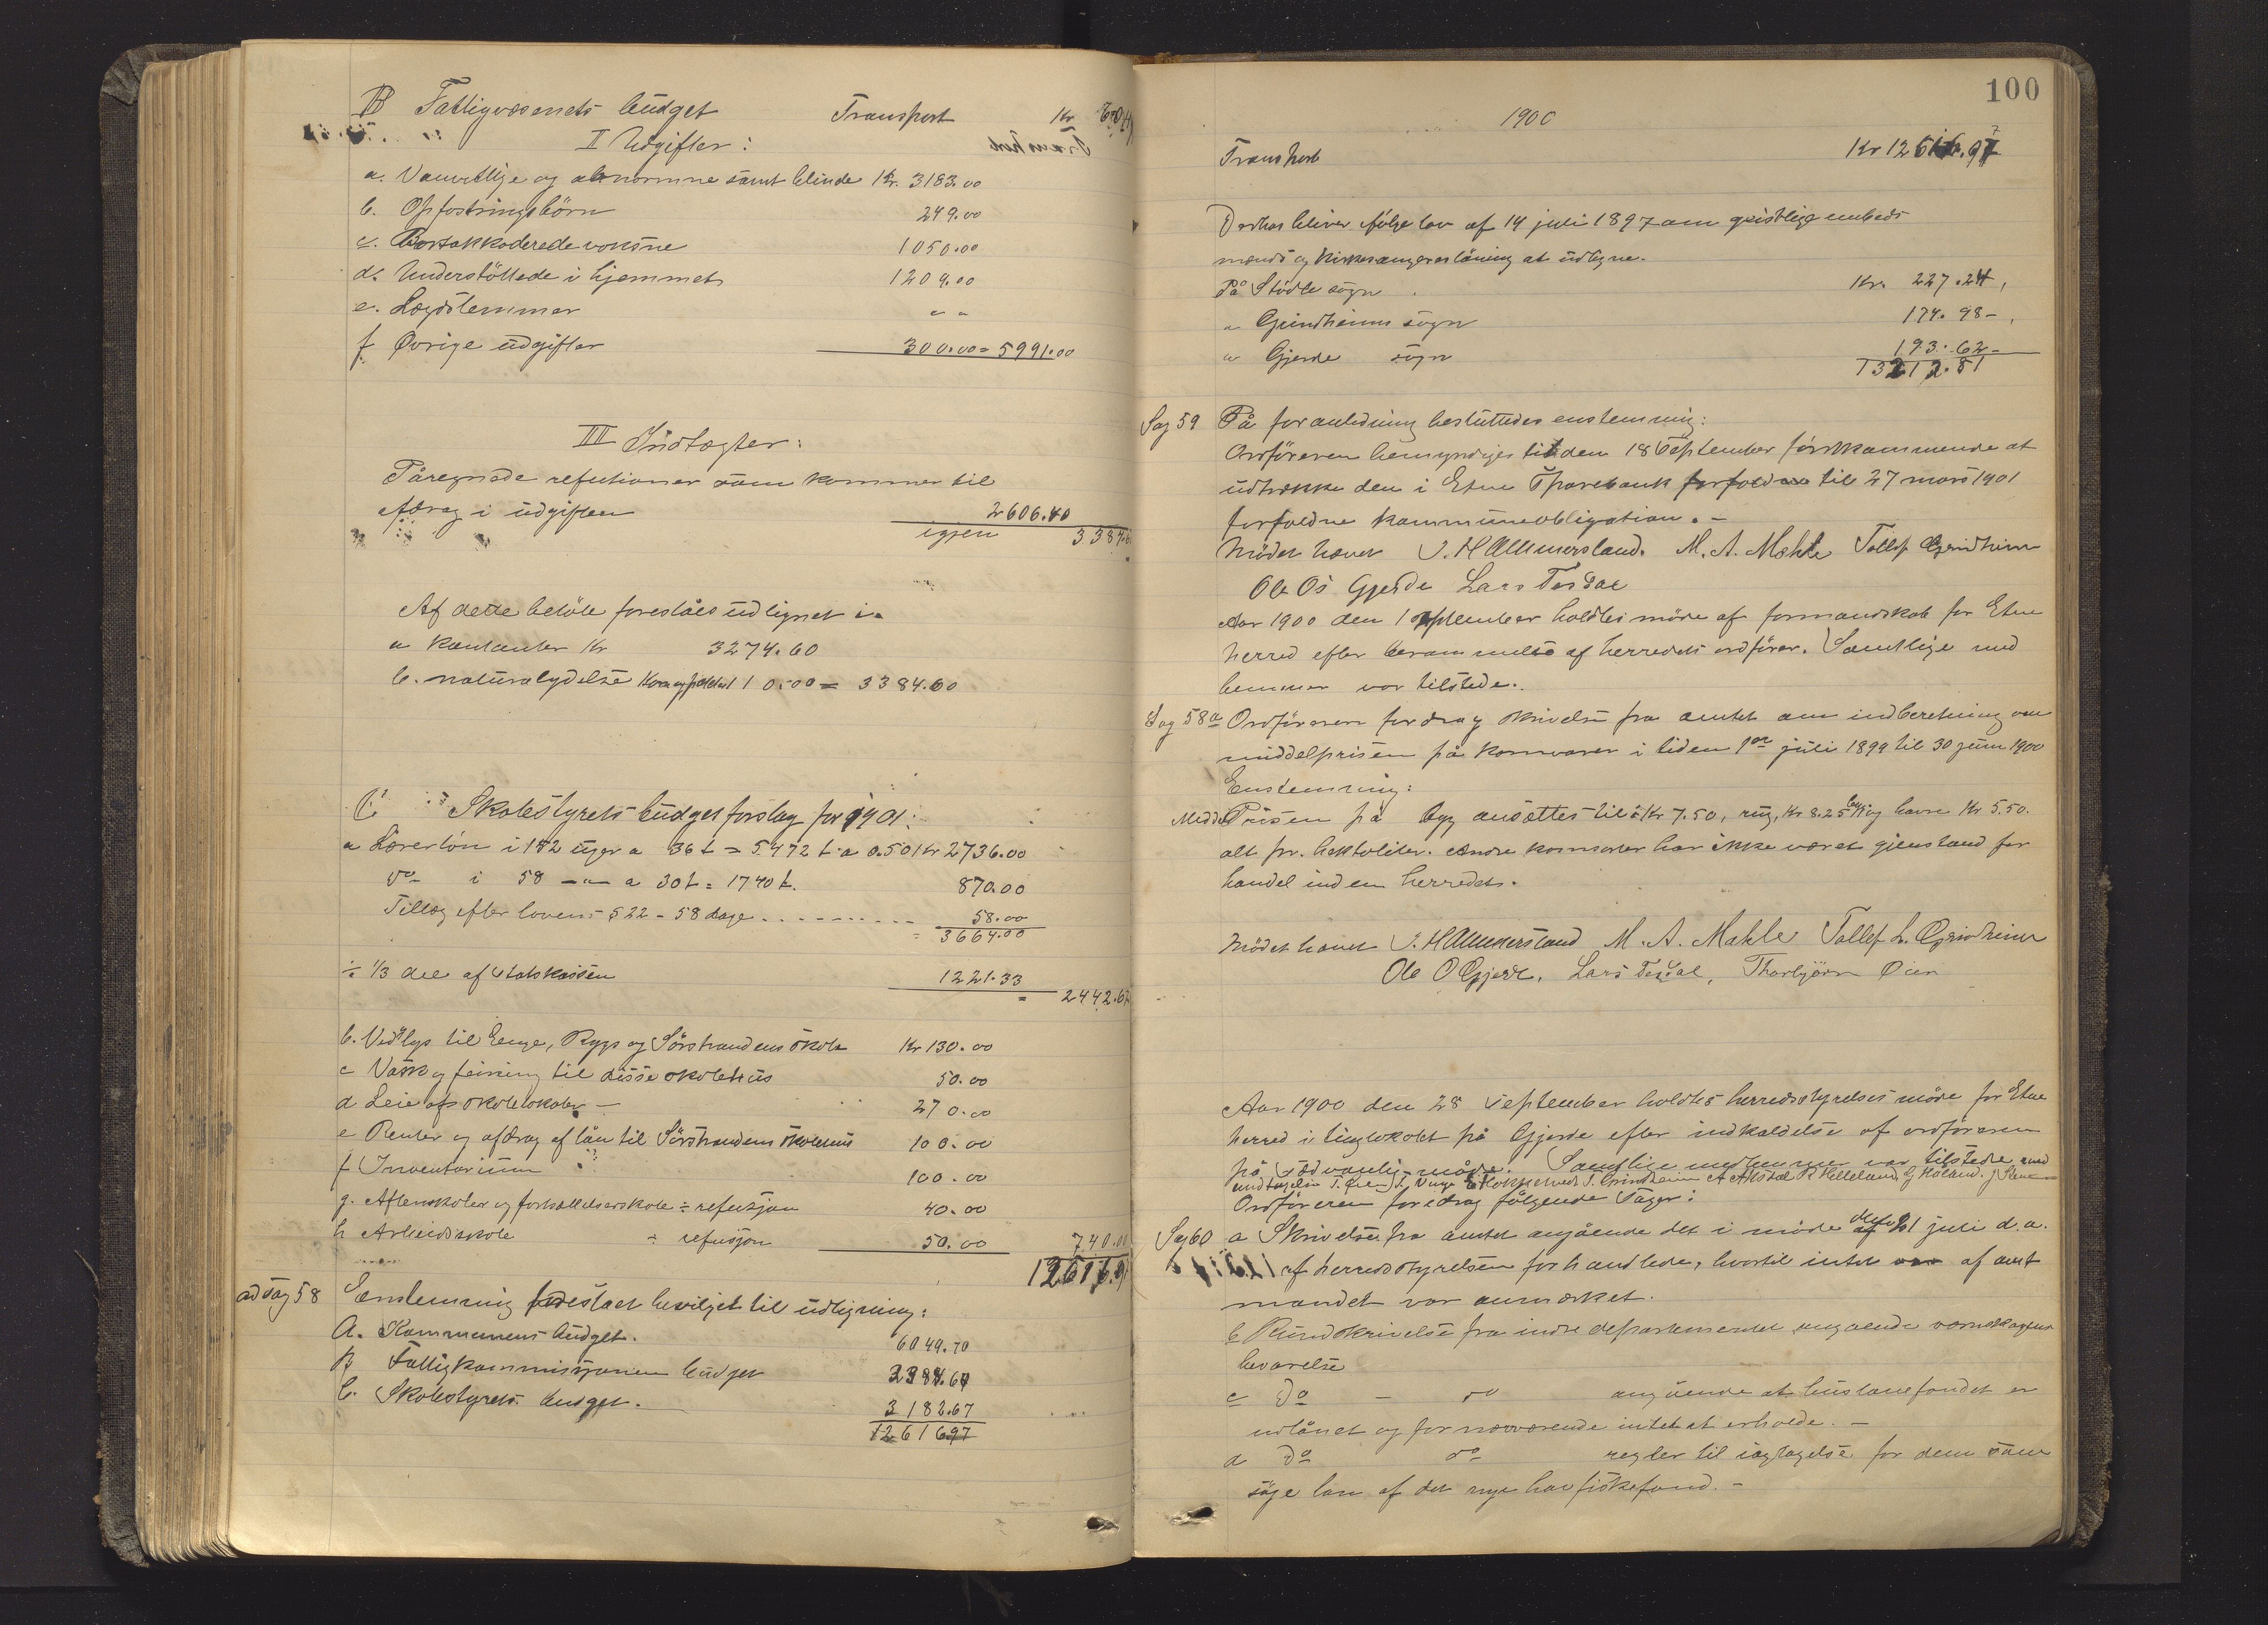 B Fattigvæsenets budget Transport Kr
II Udgifter:
a. Vanvittige og abnorme samt blinde Kr. 3183.00
b. Opfostringsbörn 249.00
c. Bortakkoderede voksne 1050.00
d. Understöttede i hjemmet 1209.00
e. Lægdslemmer " "
f Øvrige udgifter 300.00 = 5991.00
III Indtægter:
Påregnede refutioner som kommer til
afdrag i udgiften 2606.40
igjen 3384.6
Af dette belöb foreslåes udlignet i
a Kontanter Kr 3274.60
b. naturalydelse 110.00 = 3384.60
C Skolestyrets budgetforslag for 1901:
a Lærerlön i 152 uger a 36 t = 5472 t a 0.50 Kr 2736.00
do i 58 -"- a 30 t = 1740 t. 870.00
Tillæg efter lovens § 22 - 58 dage 58.00
= 3664.00
÷ 1/3 del af Statskassen 1221.33
= 2442.67
b. Ved & lys til Enge, Rygs og Sörstrandens skole Kr 130.00
c Vask og feining til disse skolehus 50.00
d Leie af skolelokaler - 270.00
e Renter og afdrag af lån til Sörstrandens skolehus 100.00
f Inventarium 100.00
g. Aftenskoler og fortsættelsesskole ÷ refusjon 40.00
h Arbeidsskole ÷ refusjon 50.00 740.00
12616.9
ad sag 58 Enstemmig foreslaet beviljet til udligning:
A. Kommunens budget. 6049.70
B Fattigkommissjonens budget 3384.60
C. Skolestyrets budget. 3182.67
12616.97
100
1900
Transport Kr 12616.97
Desthos bliver ifølge lov af 14 juli 1897 om geistlige embeds
mænds og kirkesangeres löning at udligne.
På Stödle sogn Kr. 227.24
" Grindheims sogn 174.98 -
" Gjerde sogn 193.62 -
13212.81
Sag 59 På foranledning besluttedes enstemmig:
Ordföreren bemyndiges til den 18 September förstkommende at
udtrække den i Etne Sparebank til 27 mars 1901
forfaldne kommuneobligation. -
Mödet hævet J. H Ammersland. M. A. Mæhle Tollef Grindheim
Ole Os Gjerde Lars Tesdal
Aar 1900 den 1 September holdtes möde af formandskab for Etne
herred efter berammelse af herredets ordförer. Samtlige med
lemmer var tilstede.
Sag 58a Ordföreren fordrag skrivelse fra amtet om indberetning om
middelprisen på kornvarer i tiden 1ste juli 1899 til 30 juni 1900
Enstemmig:
Middel Prisen på byg ansættes til Kr 7.50, rug, Kr 8.25 og havre Kr 5.50.
alt pr. hektoliter. Andre kornsorter har ikke været gjenstand for
handel inden herredet.
Mödet hævet J. H Ammersland M. A. Mæhle Tollef L. Grindheim
Ole O Gjerde. Lars Tesdal, Thorbjörn Øien
Aar 1900 den 28 September holdtes herredsstyrelses möde for Etne
herred i tinglokalet på Gjerde efter indkaldelse af ordföreren
på sædvanlig måde. Samtlige medlemmer var tilstede med
undtagelse T. Øien, J. Grindheim R Helleland, G Håland.
Ordföreren foredrag fölgende Sager:
Sag 60 a Skrivelse fra amtet angående det i möde 21 juli d.a.
af herredsstyrelsen forhandlede, hvortil intet af amt
mandet var anmærket.
b Rundskrivelse fra indre departementet angaende
bevarelse
c do - do angående at huslånefondet er
udlånet og for nærværende intet at erholde. -
d do do regler til iagtagelse for dem som
söge lån af det nye havfiskefond. -